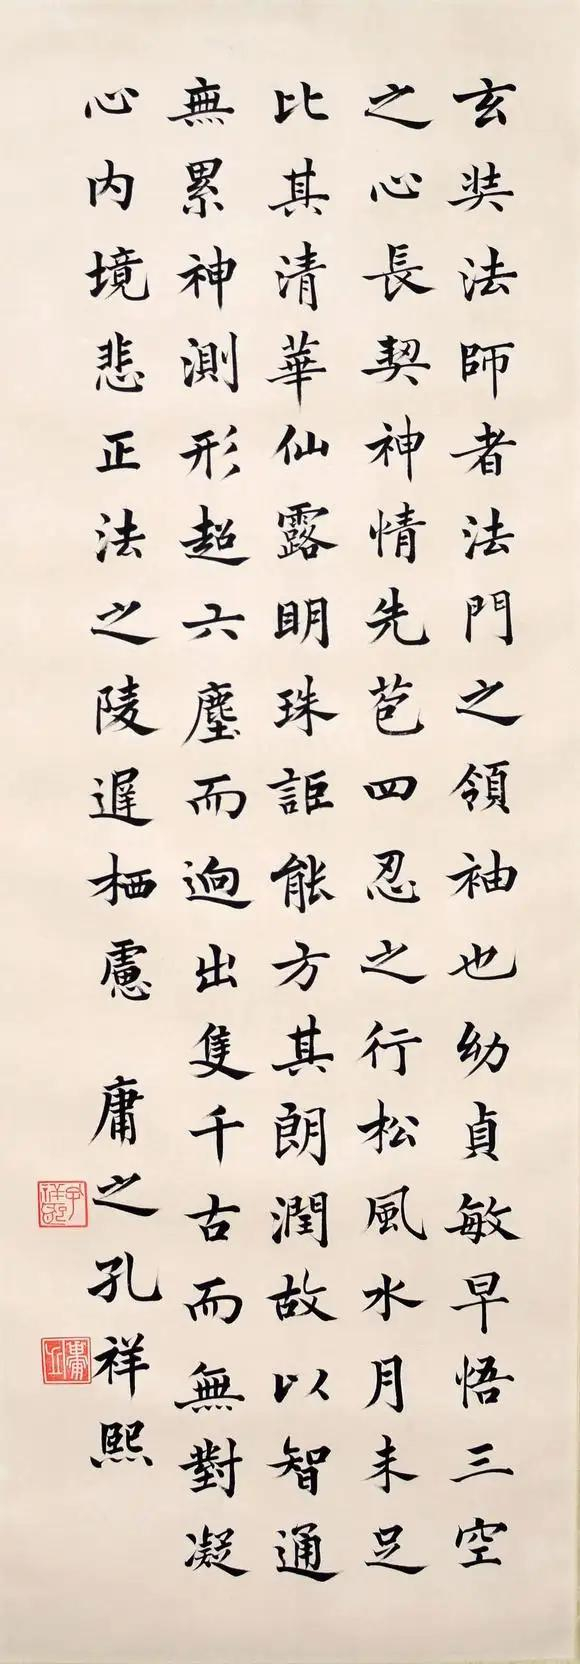 玄奘法師者法門之領袖也幼貞敏早悟三空
之心長契神情先苞四忍之行松風水月未足
比其清華仙露明珠詎能方其朗潤故以智通
無累神測形超六塵而迥出隻千古而無對凝
心內境悲正法之陵遲栖慮
庸之孔祥熙